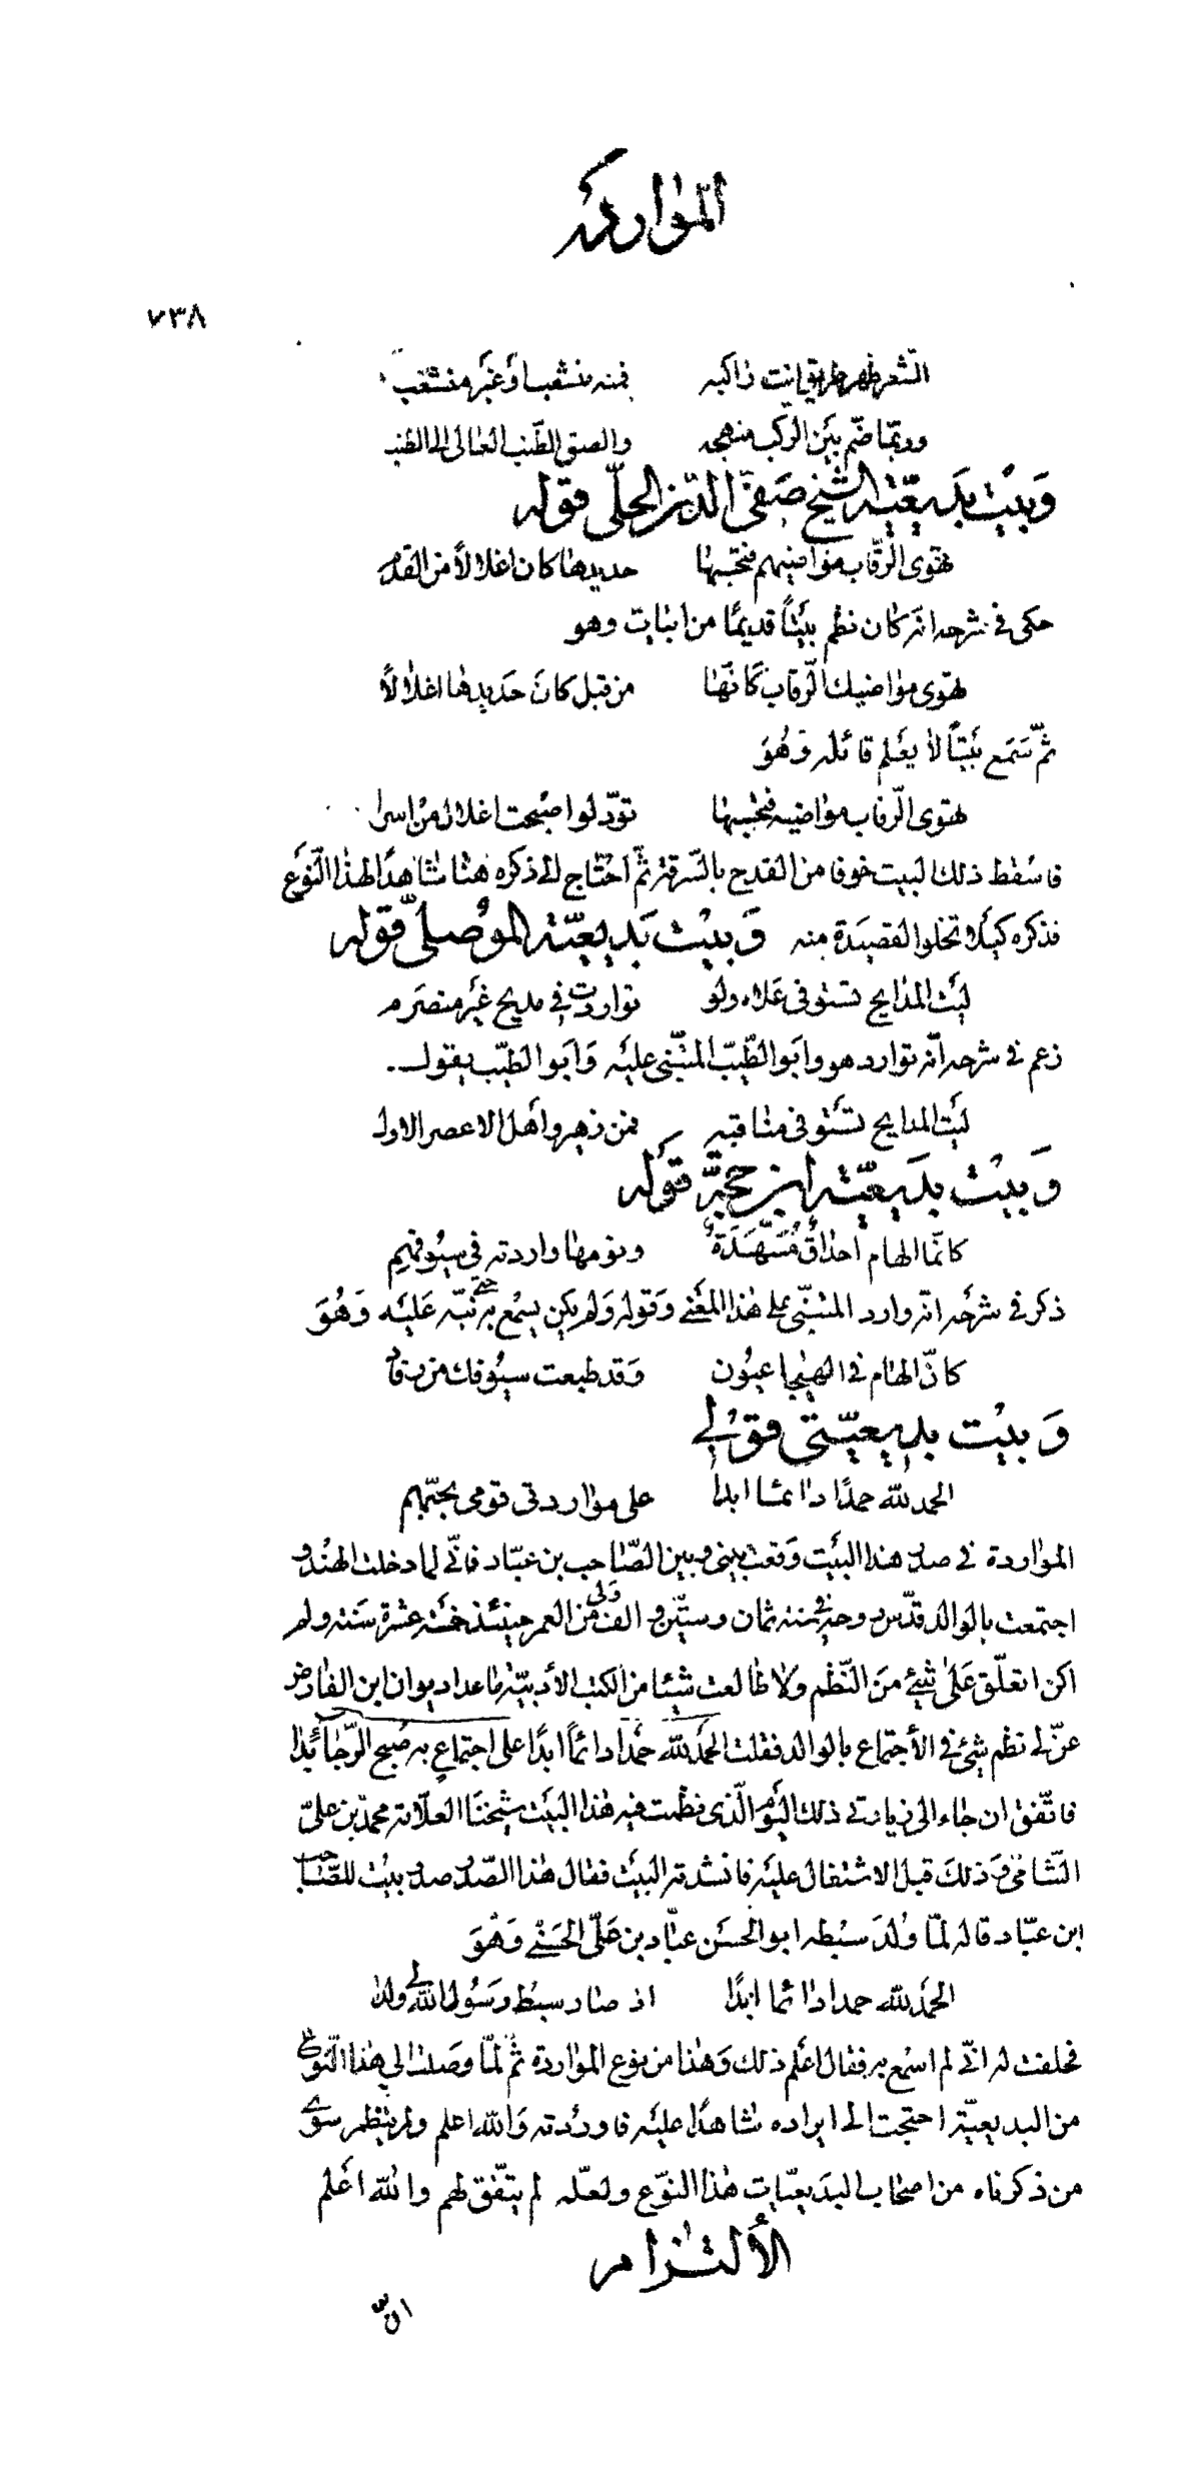 المواردة
٧٣٨
الشعر ظهر طريق انت راكبه فمنه منشعب او غير منشعب
وربّما ضمّ بين الركب منهجه والصق الطّنب العالى الى الطنب
وَبيْت بَديعيّة الشيخ صَفىّ الدّين الحلّى قوله
تهوى الرّقاب مواضيهم فتحسبها حديدها كان اغلالاً من القدم
حكى فى شرحه انّه كان نظم بيَتاً قديمًا من ابيات وهو
تهوى مواضيك الرّقاب كانّها من قبل كانَ حَديدها اغلالاً
ثمّ سَمَع بَيَتاً لا يعَلم قائله وَهُوَ
تهوى الرّقاب مواضيه فتحسبها تودّ لو اصبحت اغلال من اسرا
فاسْقط ذلك البيت خوفا من القدح بالسّرقة ثمّ احْتاج الى ذكره هنا شاهدًا لهذا النّوَع
فذكره كيَلا تخلوا القصيَدة منه وَبيْت بَديعيّة الموُصلىّ قوله
ليَت المدايح تستوفى عَلاه ولو تواردت فى مديح غيَر منصَرم
زعم فى شرحه انّه توارد هو وابَو الطّيّب المتنبّى عليَه وَابَو الطيّب يقول
ليَت المدايح تستَوفى مناقبه فمن زهير واهَل الاعصر الاول
وَبيْت بدَيعيّة ابن حجّة قوَله
كانّما الهام احداقٌ مُسَهّدَةٌ ونومها واردته فى سيُوفهِم
ذكر فى شرحَه انّه وارد المتنبّى على هذا المعَنى وَقوله وَلم يكن يسمْع به حتى نبّه عَليَه وَهُوَ
كانّ الهام فى الهيجا عيُون وَقد طبعت سيُوفك من رقاد
وَبيْت بديعيّتى فقوْلى
الحمد للّه حمدًا دائما ابدا على مواردتى قومى بحبّهم
المواردة فى صدر هذا البيَت وَقعَت بينى وبين الصّاحب بن عبّاد فانّى لما دخلت الهنْد و
اجتمعت بالوالد قدّس روحه فى سنة ثمان وستّين و الف ولى من العمر حينئذ خمَسَة عشرة سَنة ولم
اكن اتعلّق عَلى شَيئ منَ النّظم ولا طالعت شيئا من الكتب الأدبيّة ما عدا ديوان ابن الفارض
عنّ لى نظم شئ فى الأجتماع بالوالد فقلت الحمَد للّه حمَدا دائماً ابدًا على اجتماعٍ به صُبح الرّجا بَدا
فاتّفق ان جاء الى زيارتى ذلك اليَوم الّذى نظمت فيه هذا البيَت شيخنَا العلّامة محمّد بن علىّ
الشّامىّ وَذلكَ قبل الاشتغال عليَه فانشدته البيَت فقال هذا الصّدر صدر بيْت للصّاحب
ابن عبّاد قاله لمّا وُلدَ سبْطه ابو الحسَن عبّاد بن عَلىّ الحَسنى وَهْوَ
الحمَد للّه حمدا دائما ابدًا اذ صار سبْط رسَول اللّه لى ولدا
فحلفت له انّى لم اسْمع به فقال اعَلم ذلك وَهذا من نوع المواردة ثمّ لمّا وصَلت الى هذا النّوع
من البديعيّة احتجت الى ايراده شاهدًا عليَه فاورَدته وَاللّه اعلم ولم ينظمه سوى
من ذكرناه من اصحاب البديعيّات هذا النوّع ولعلّه لم يتّفق لهم واللّه اعَلم
الألتزام